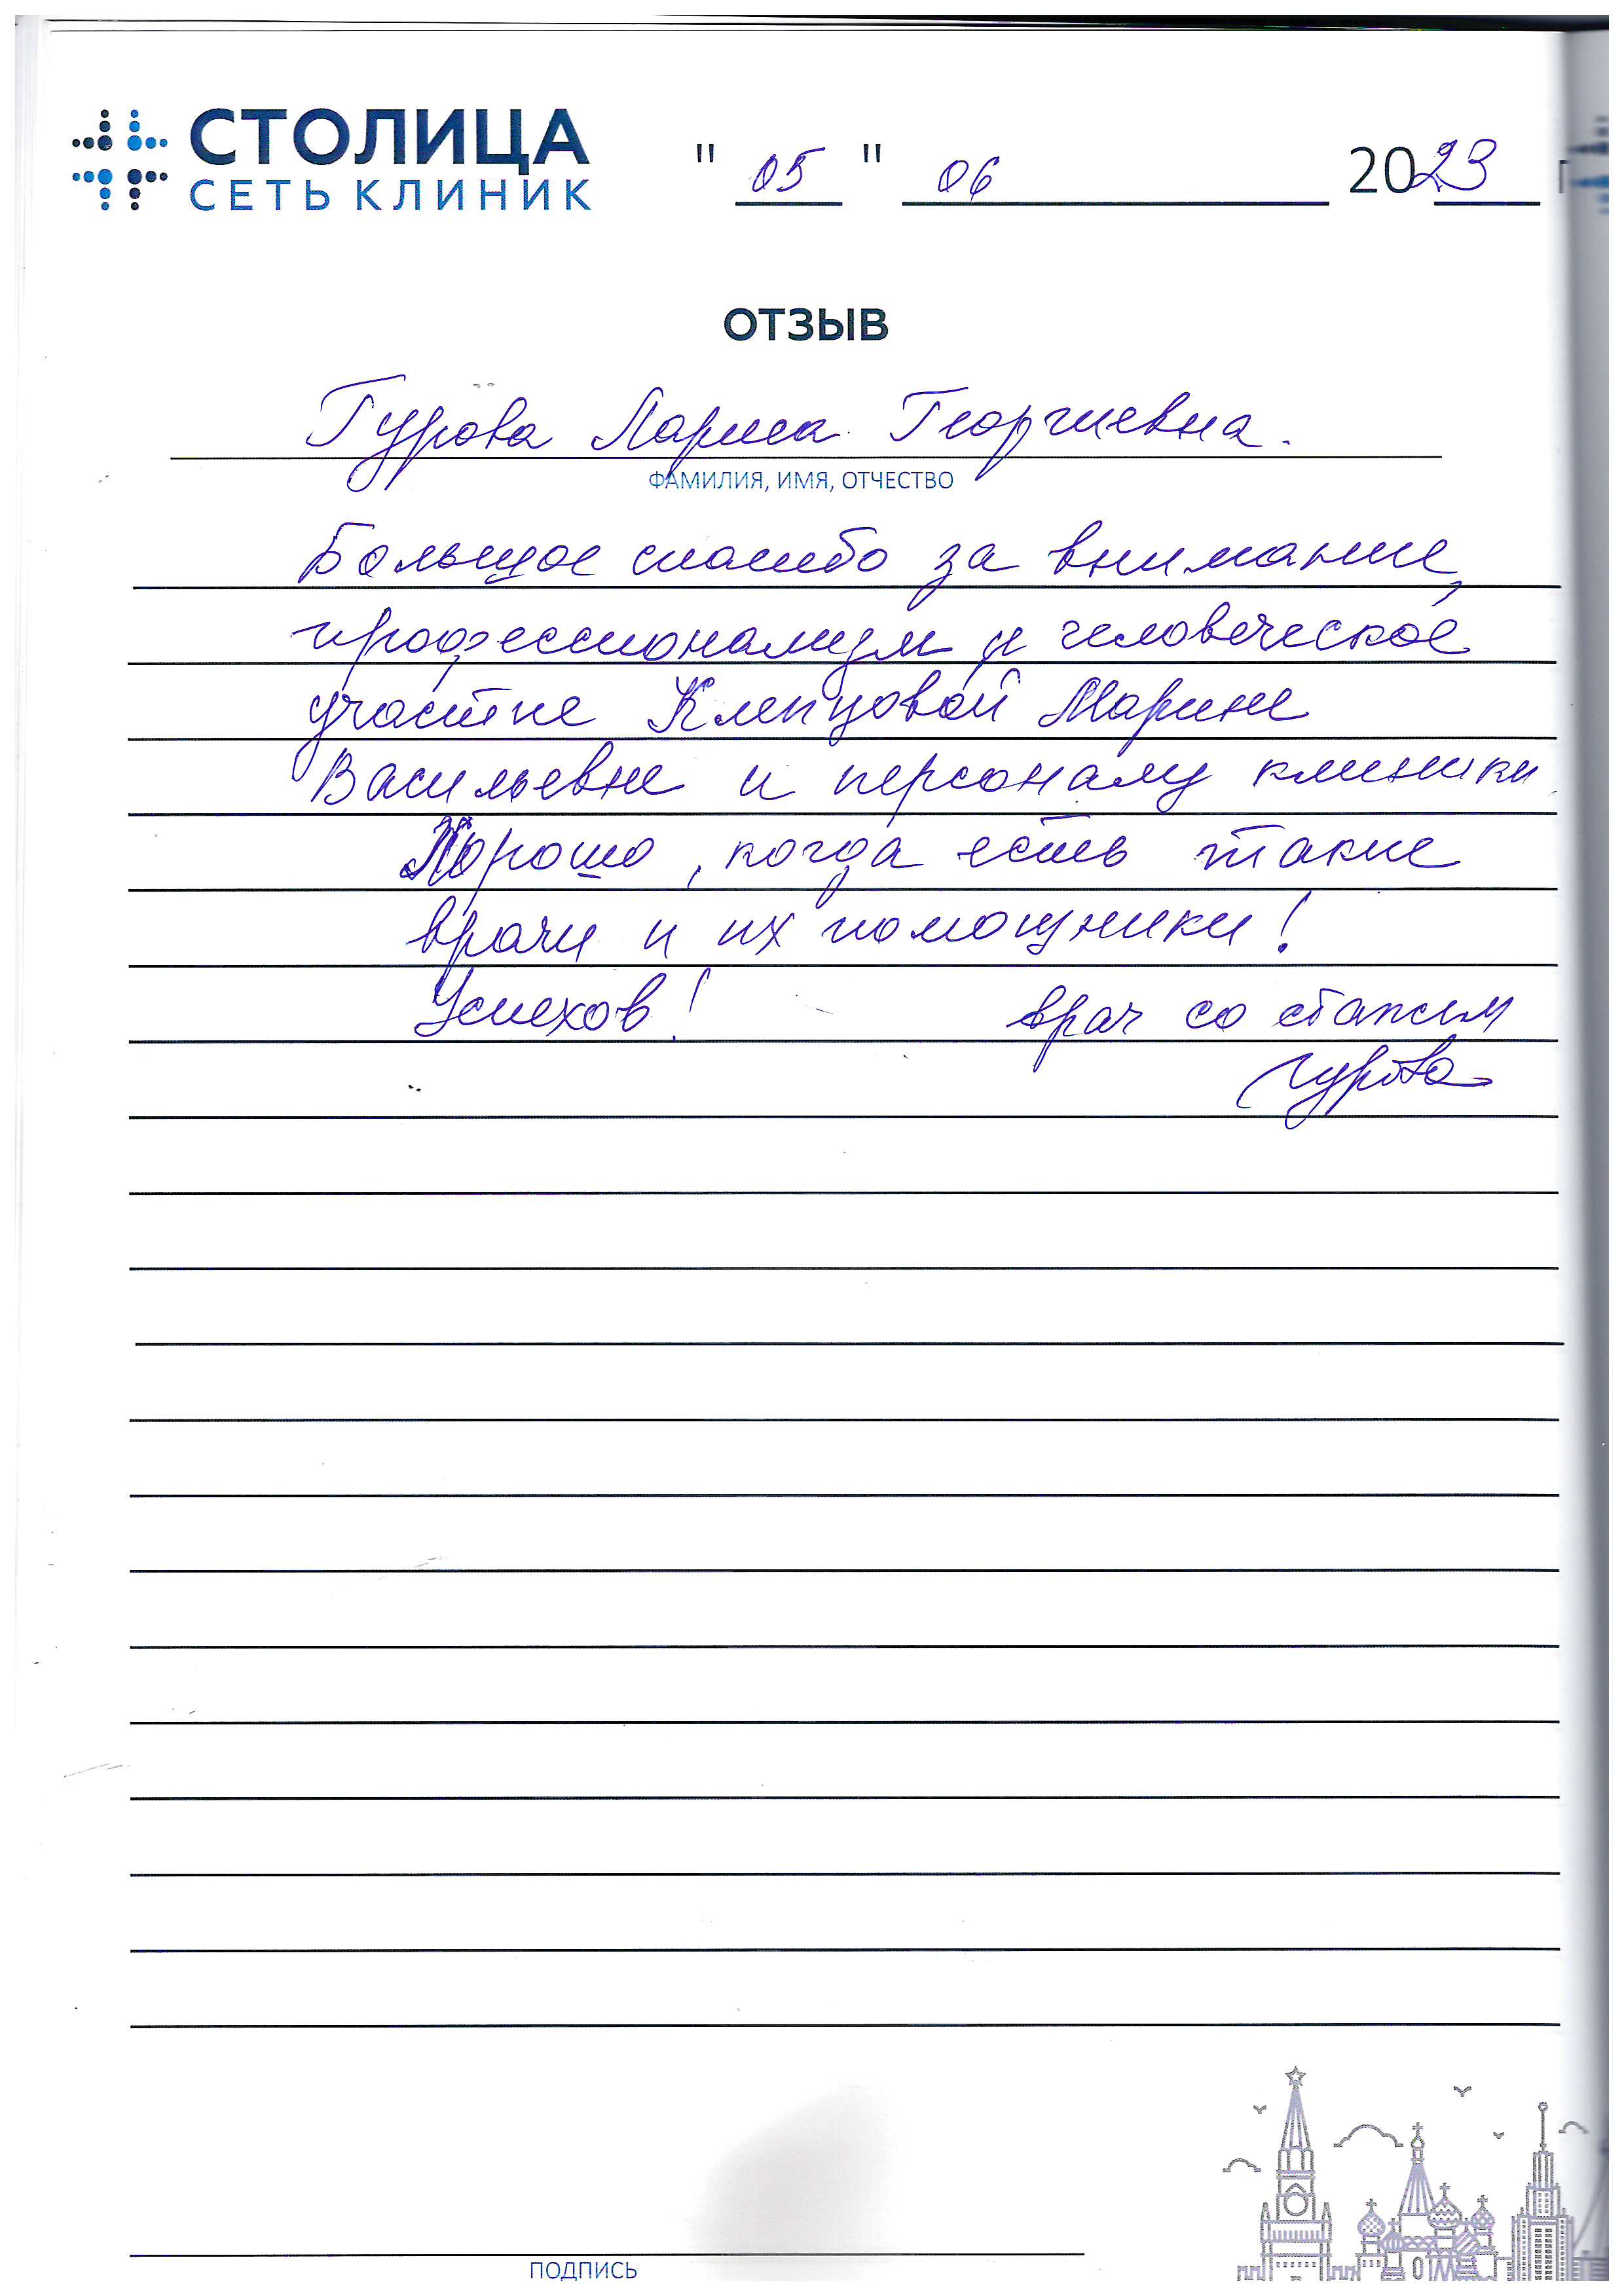 СТОЛИЦА
СЕТЬ КЛИНИК
" 05 " 06 2023 г
ОТЗЫВ
Гурова Лариса Георгиевна.
ФАМИЛИЯ, ИМЯ, ОТЧЕСТВО
Большое спасибо за внимание,
профессионализм и человеческое
участие Клепцовой Марине
Васильевне и персоналу клиники.
Хорошо, когда есть такие
врачи и их помощники!
Успехов! врач со стажем
Гурова
ПОДПИСЬ